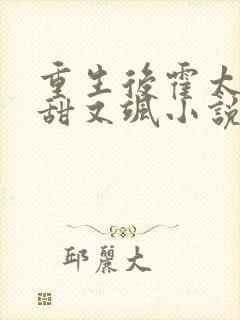 重生後霍太
甜又颯小說
邱麗大